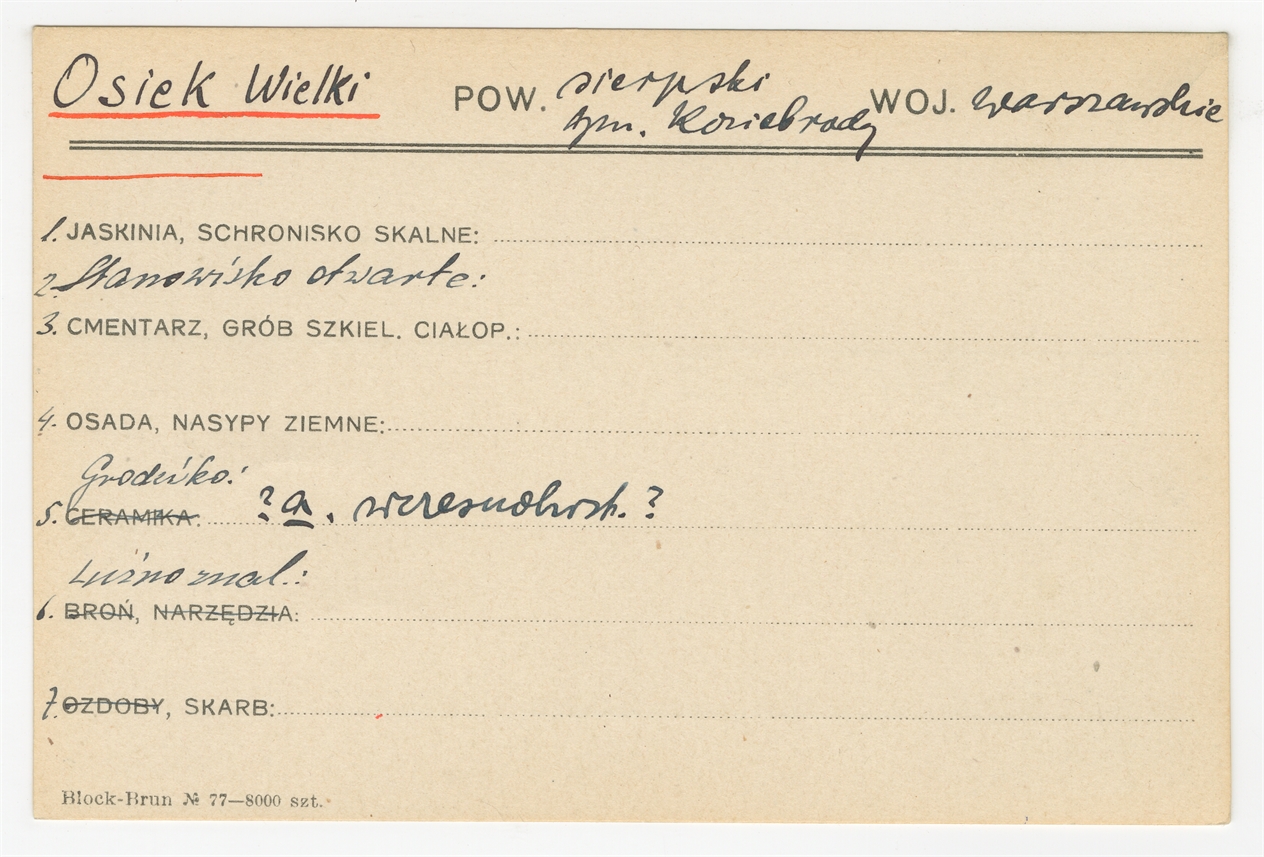 Osiek Wielki POW. sierpski WOJ. warszawskie
gm. Koziebrody
1. JASKINIA, SCHRONISKO SKALNE:
2. Stanowisko otwarte:
3. CMENTARZ, GRÓB SZKIEL. CIAŁOP.:
4. OSADA, NASYPY ZIEMNE:
Grodzisko:
5. CERAMIKA: ? a. wczesnohist. ?
Luźno znal.:
6. BROŃ, NARZĘDZIA:
7. OZDOBY, SKARB:
Block-Brun № 77—8000 szt.